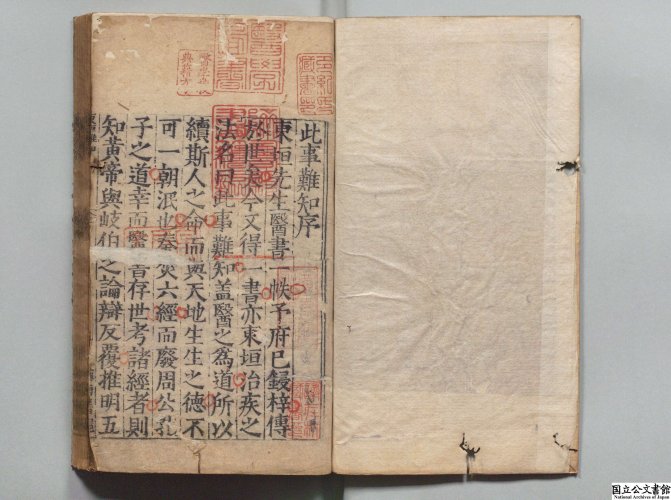 此事難知序
東垣先生醫書一帙予府已鋟梓傳
於世矣今又得一書亦東垣治疾之
法名曰此事難知盖醫之為道所以
續斯人之命而與天地生生之德不
可一朝泯也秦焚六經而廢周公孔
子之道幸而醫書存世考諸經者則
知黃帝與岐伯之論辯反覆推明五
国立公文書館
National Archives of Japan